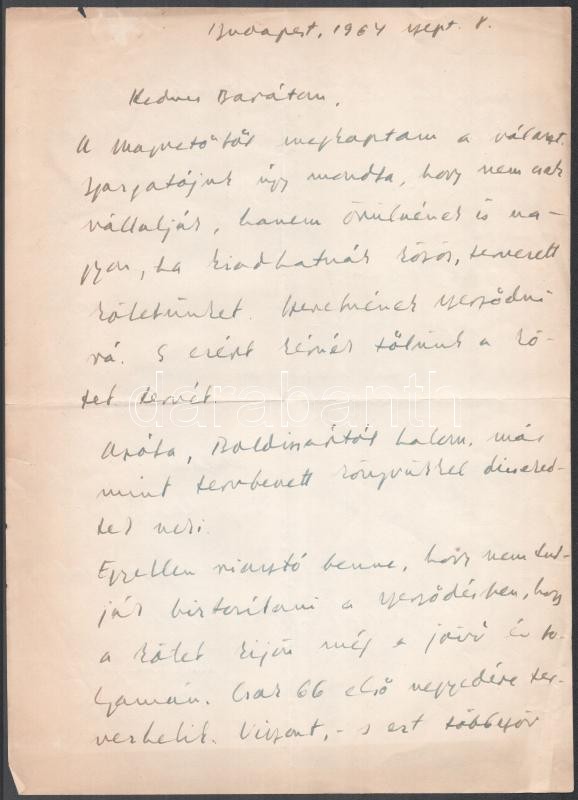 Budapest, 1964 szept. 8.
Kedves Barátom,
A Magvetőtől megkaptam a választ.
Igazgatójuk úgy mondta, hogy nem csak
vállalják, hanem örülnének is na-
gyon, ha kiadhatnák közös, tervezett
kötetünket. Szeretnének szerződni
rá. S ezért kérnek tőlünk a kö-
tet tervét.
darabanth
Azóta, Boldizsártól hallom, már
mint tervbevett könyvükkel dicseked-
tek neki.
Egyetlen riasztó benne, hogy nem tud-
ják biztosítani a szerződésben, hogy
a kötet kijön még a jövő év fo-
lyamán. Csak 66 első negyedére ter-
vezhetik. Viszont, - s ezt többször